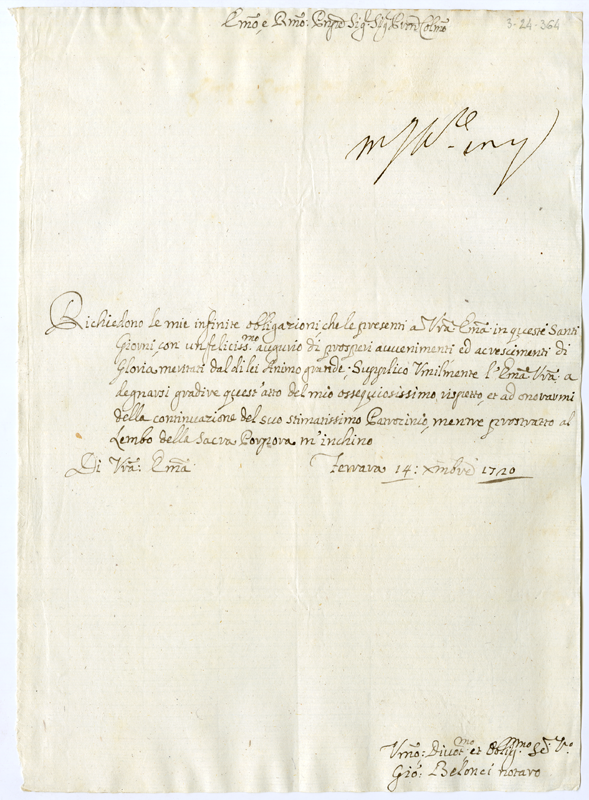 Emo, e Rmo: Sigr: Sigr Colmo
3-24-364
Richiedono le mie infinite obligazioni che le presenti a Vra Ema in queste Santi
Giorni con un feliciss.mo augurio di prosperi auuenimenti ed acrescimenti di
Gloria meritati dal di lei Animo grande; Supplico Vmilmente l'Ema Vra: a
degnarsi gradire quest'atto del mio ossequiosissimo rispetto, et ad onorarmi
della continuazione del suo stimatissimo Patrozinio, mentre prostratto al
Lembo della Sacra Porpora m'inchino
Di Vra: Ema: Ferrara 14: Xmbre 1720
Vmo: Diuot.mo et Obblig.mo Se.r Vro
Gio: Belonci notaro